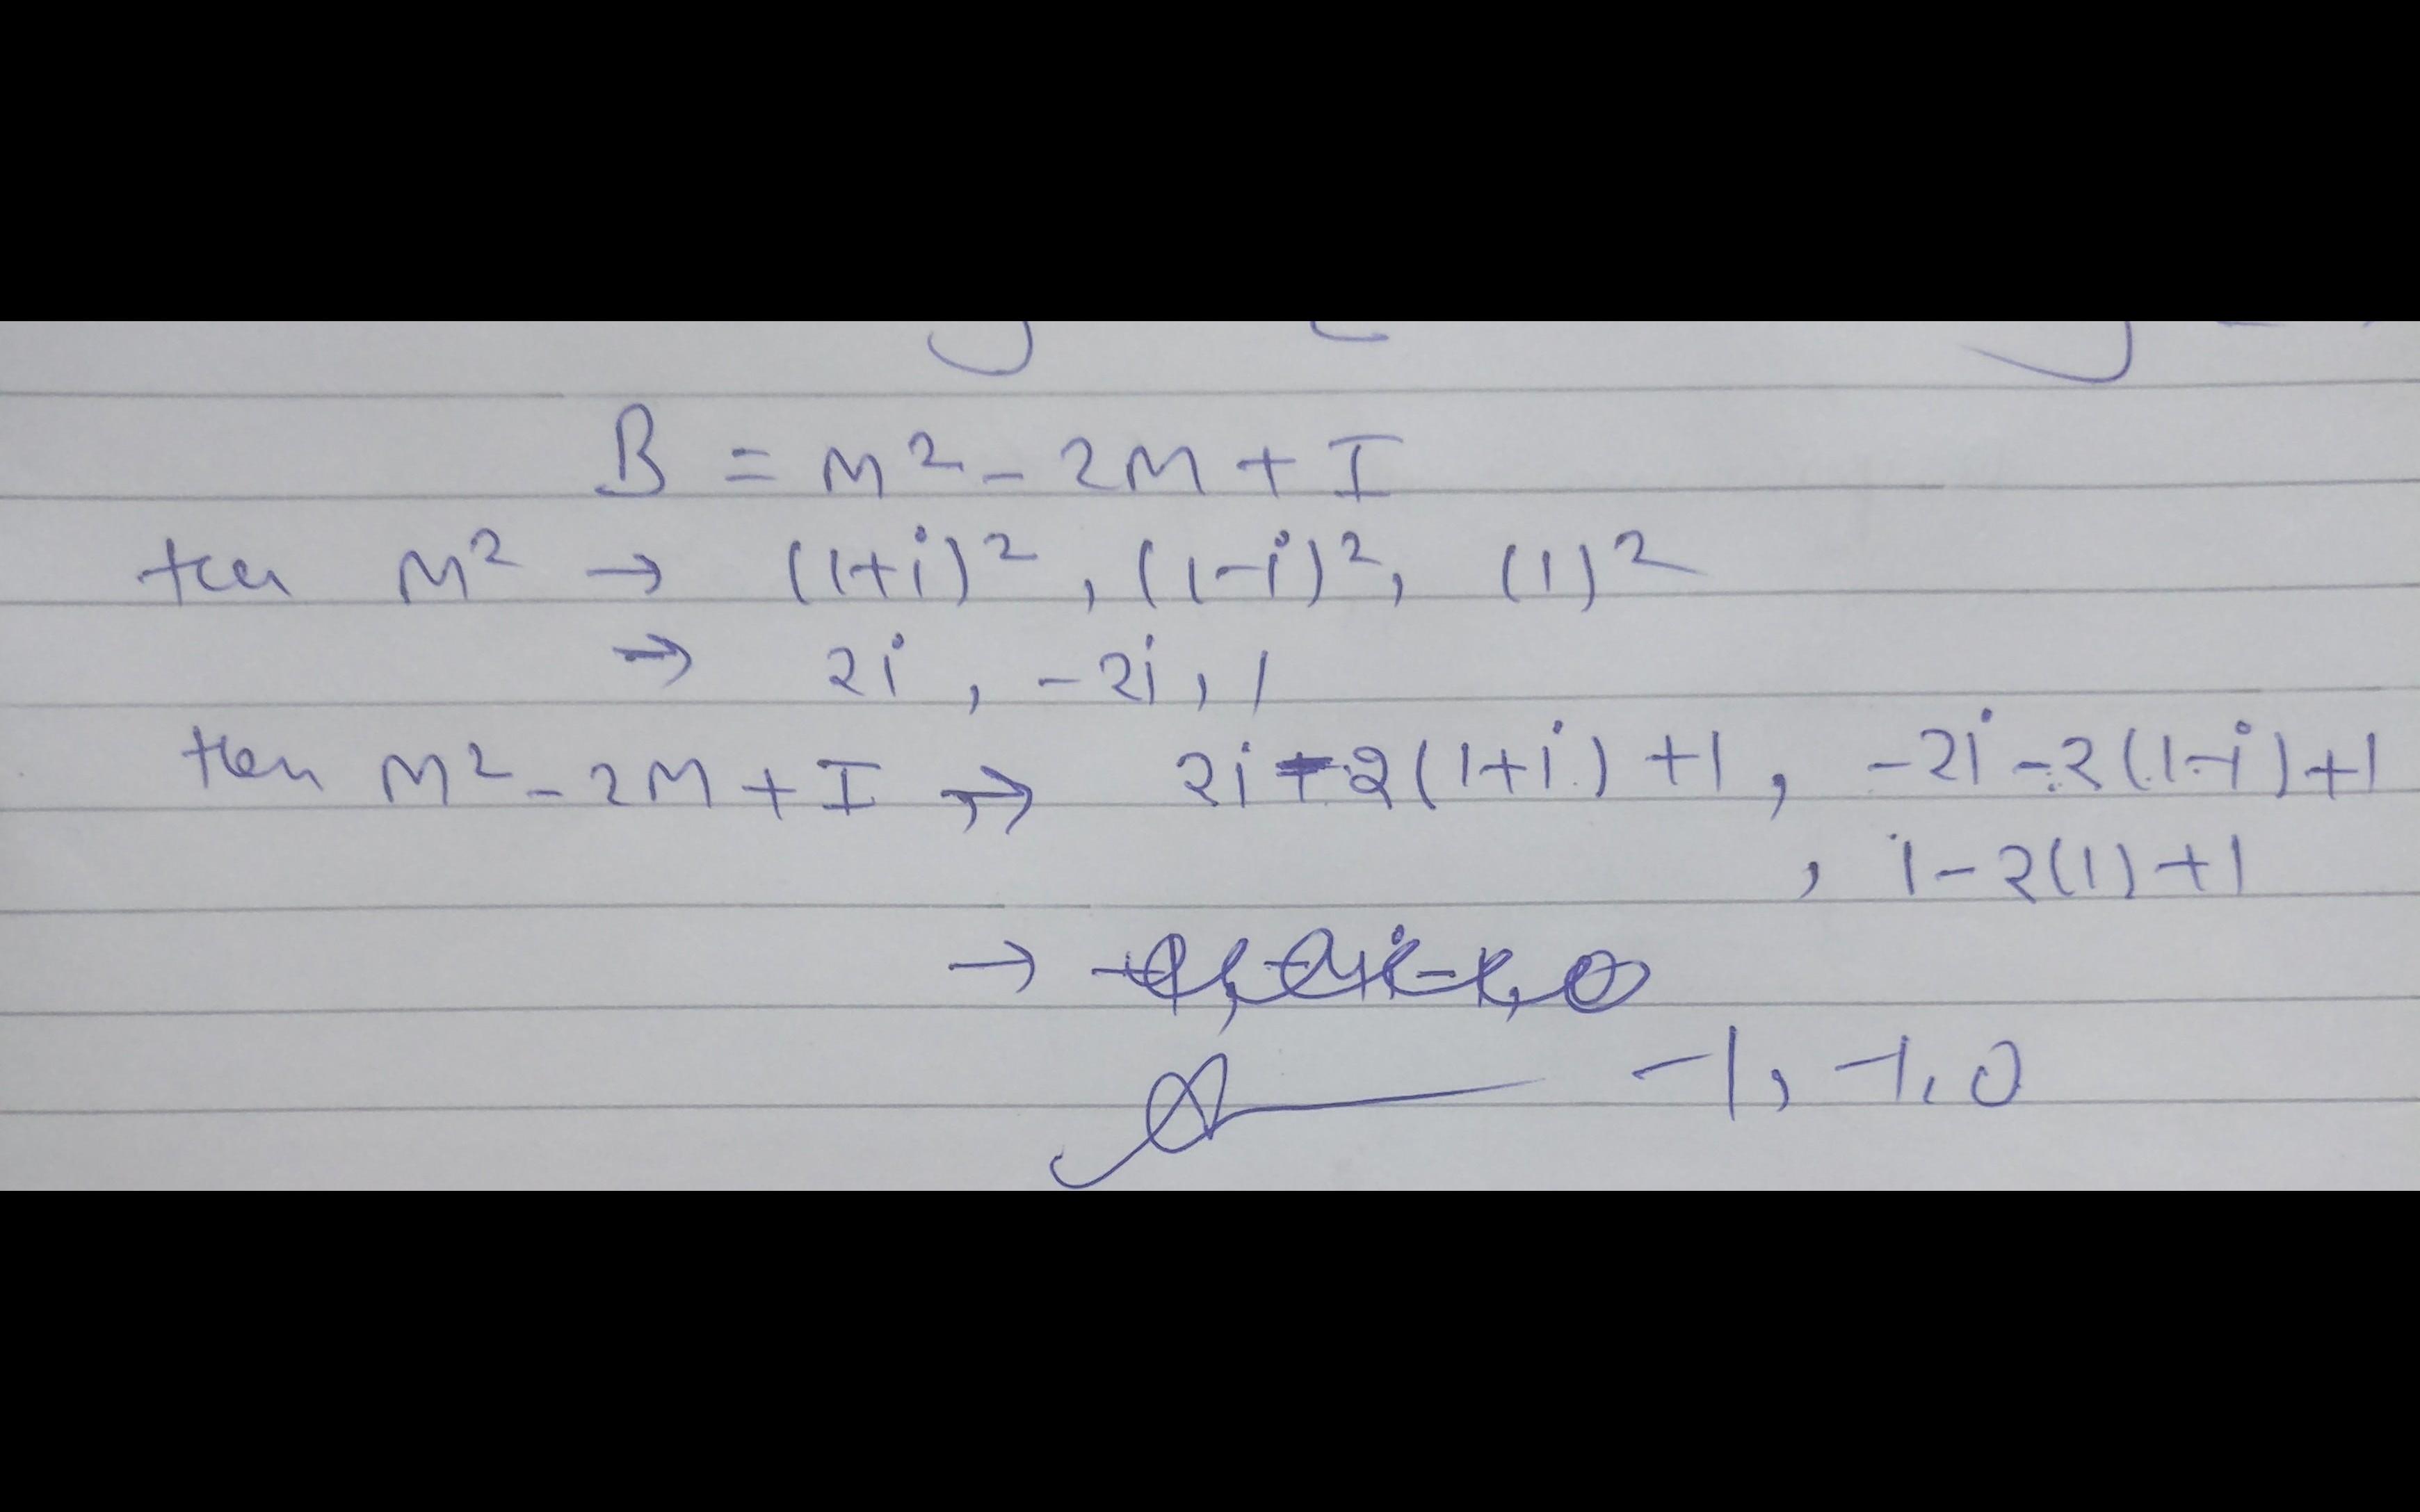 B = M² - 2M + I
M² → (1+i)², (1-i)², (1)²
→ 2i, -2i, 1
then M² - 2M + I → 2i - 2(1+i) + 1, -2i - 2(1-i) + 1
, 1 - 2(1) + 1
→
-1, -1, 0